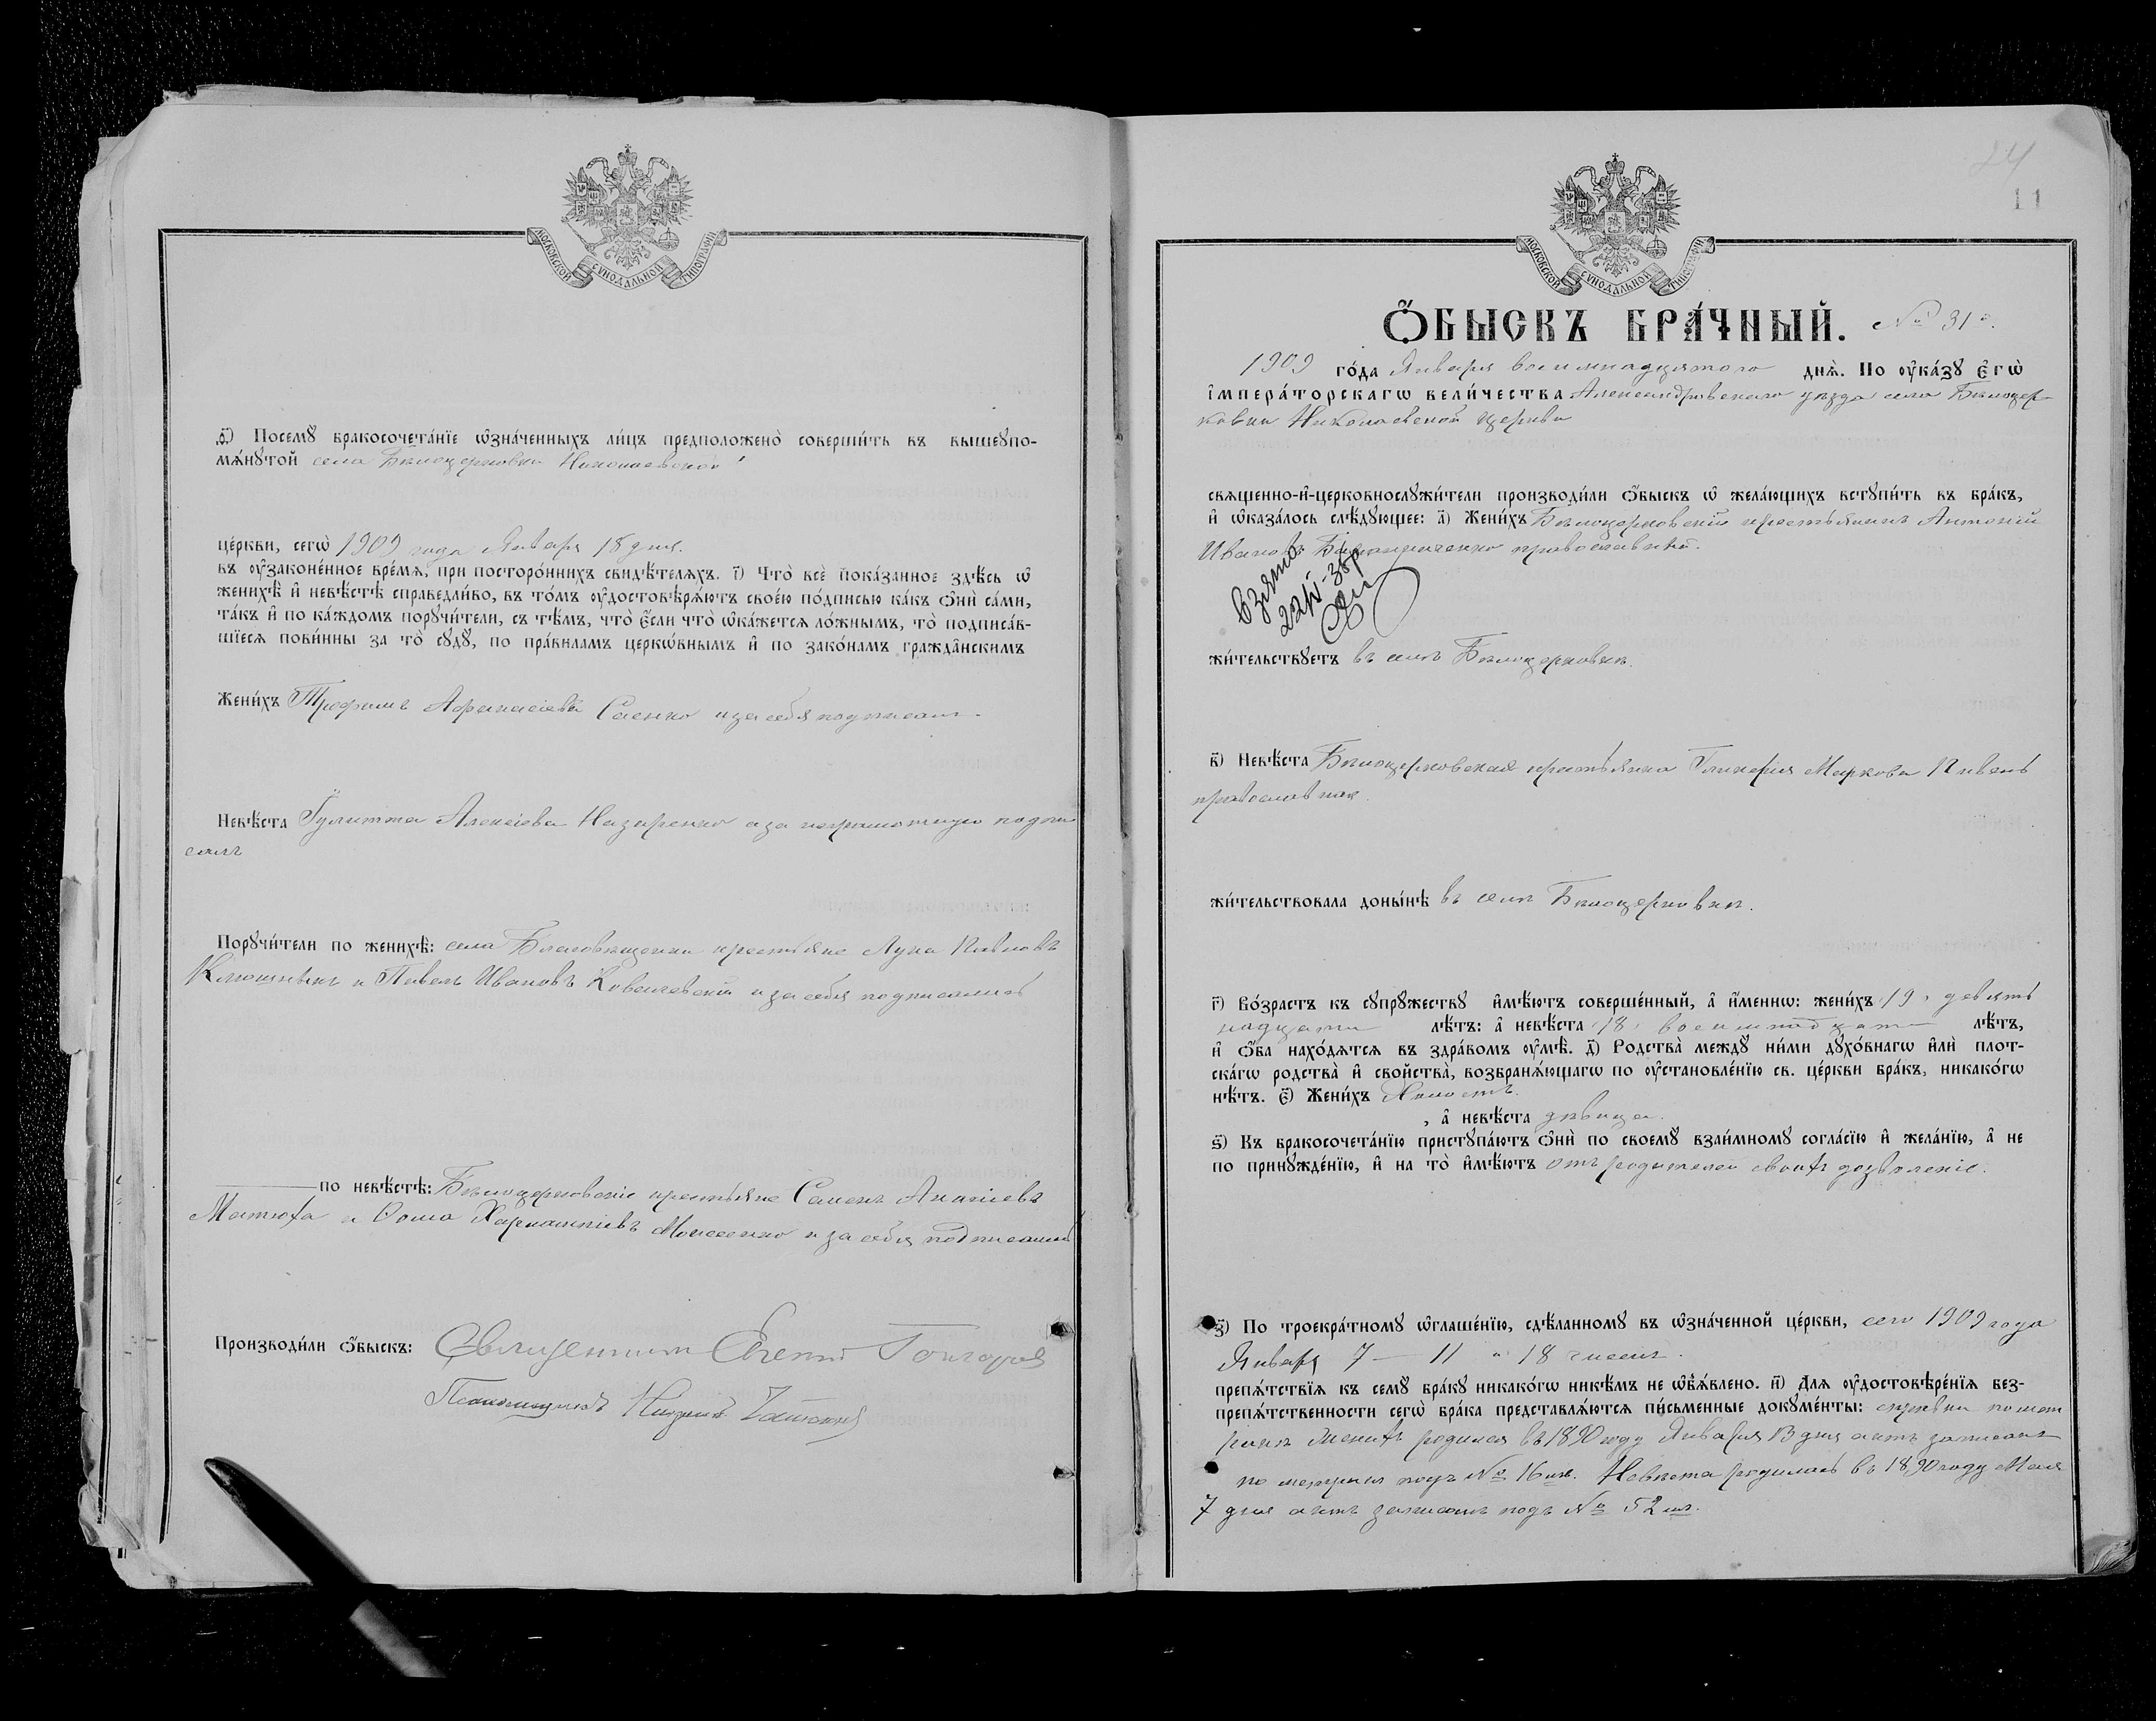 МОСКОВСКОЙ СУНОДАЛЬНОЙ ТИПОГРАФІИ
ѳ҃) Посемꙋ бракосочета́нїе ѡ҆зна́ченныхъ ли́цъ предположено̀ соверши́ть въ вышеꙋпо-
мѧ́нꙋтой села Бѣлоцерковки Николаевской
це́ркви, сегѡ̀ 1909 года Января 18 дня.
въ ᲂу҆законе́нное вре́мѧ, при посторо́ннихъ свидѣ́телѧхъ. і҃) Что̀ всѐ пока́занное здѣ́сь ѡ҆
женихѣ̀ и҆ невѣ́стѣ справедли́во, въ то́мъ ᲂу҆достовѣрѧ́ютъ свое́ю по́дписью ка́къ ѻ҆нѝ са́ми,
та́къ и҆ по ка́ждомъ порꙋчи́тели, съ тѣ́мъ, что̀ є҆́сли что̀ ѡ҆ка́жетсѧ ло́жнымъ, то̀ подписа́в-
шїесѧ пови́нны за то̀ сꙋдꙋ̀, по пра́виламъ церкѡ́внымъ и҆ по зако́намъ гражда̂нскимъ
Жени́хъ Трофимъ Афанасіевъ Саенко и за себя подписалъ
Невѣ́ста Гулитта Алексіева Назаренко а за неграмотную подпи
салъ
Порꙋчи́тели по женихѣ̀: села Благовѣщенки крестьяне Лука Павловъ
и Павелъ Ивановъ и за себя подписались
по невѣ́стѣ: Бѣлоцерковскіе крестьяне Семенъ Ананіевъ
Матюха и Ѳома Моисеенко и за себя подписались
Производи́ли ѻ҆́быскъ: Священникъ Евгеній
Псаломщикъ
24
11
МОСКОВСКОЙ СУНОДАЛЬНОЙ ТИПОГРАФІИ
Ѻ҆́БЫСКЪ БРА́ЧНЫЙ. № 31й.
1909 го́да Января восемнадцятого днѧ̀. По ᲂу҆ка́зꙋ є҆гѡ̀
і҆мпера́торскагѡ вели́чества Александровскаго уѣзда села Бѣлоцер-
ковки Николаевской церкви
свѧщенно-и҆-церковнослꙋжи́тели производи́ли ѻ҆́быскъ ѡ҆ жела́ющихъ встꙋпи́ть въ бра́къ,
и҆ ѡ҆каза́лось слѣ́дꙋющее: а҃) Жени́хъ Бѣлоцерковскій крестьянинъ Антоній
Ивановъ православный.
взято
жи́тельствꙋетъ въ селѣ Бѣлоцерковкѣ.
в҃) Невѣ́ста Бѣлоцерковская крестьянка Гликерия Маркова Пивень
православная.
жи́тельствовала доны́нѣ въ селѣ Бѣлоцерковкѣ.
г҃) Во́зрастъ къ сꙋпрꙋ́жествꙋ и҆мѣ́ютъ соверше́нный, а҆ и҆́меннѡ: жени́хъ 19, девять
надцати лѣ́тъ: а҆ невѣ́ста 18, восемнадцати лѣ́тъ,
и҆ ѻ҆́ба нахо́дѧтсѧ въ здра́вомъ ᲂу҆мѣ̀. д҃) Родства̀ междꙋ̀ ни́ми дꙋхо́внагѡ и҆лѝ плот-
ска́гѡ родства̀ и҆ свойства̀, возбранѧ́ющагѡ по ᲂу҆становле́нїю св. це́ркви бра́къ, никако́гѡ
нѣ́тъ. є҃) Жени́хъ Холостъ.
, а҆ невѣ́ста дѣвица.
ѕ҃) Къ бракосочета́нїю пристꙋпа́ютъ ѻ҆нѝ по своемꙋ̀ взаи́мномꙋ согла́сїю и҆ жела́нїю, а҆ не
по принꙋжде́нїю, и҆ на то̀ и҆мѣ́ютъ отъ родителей своихъ дозволеніе.
з҃) По троекра́тномꙋ ѡ҆глаше́нїю, сдѣ́ланномꙋ въ ѡ҆зна́ченной це́ркви, сего 1909 года
Января 7 — 11 и 18 чиселъ.
препѧ́тствїѧ къ семꙋ̀ бра́кꙋ никако́гѡ никѣ́мъ не ѡ҆б̾ѧ́влено. и҃) Для ᲂу҆достовѣре́нїѧ без-
препѧ́тственности сегѡ̀ бра́ка представлѧ́ютсѧ пи́сьменные докꙋме́нты: справки по мет
рикѣ Женихъ родился въ 1890 году Января 13 дня актъ записанъ
по метрикѣ подъ № 16 мк. Невѣста родилась въ 1890 году Мая
7 дня актъ записанъ подъ № 52